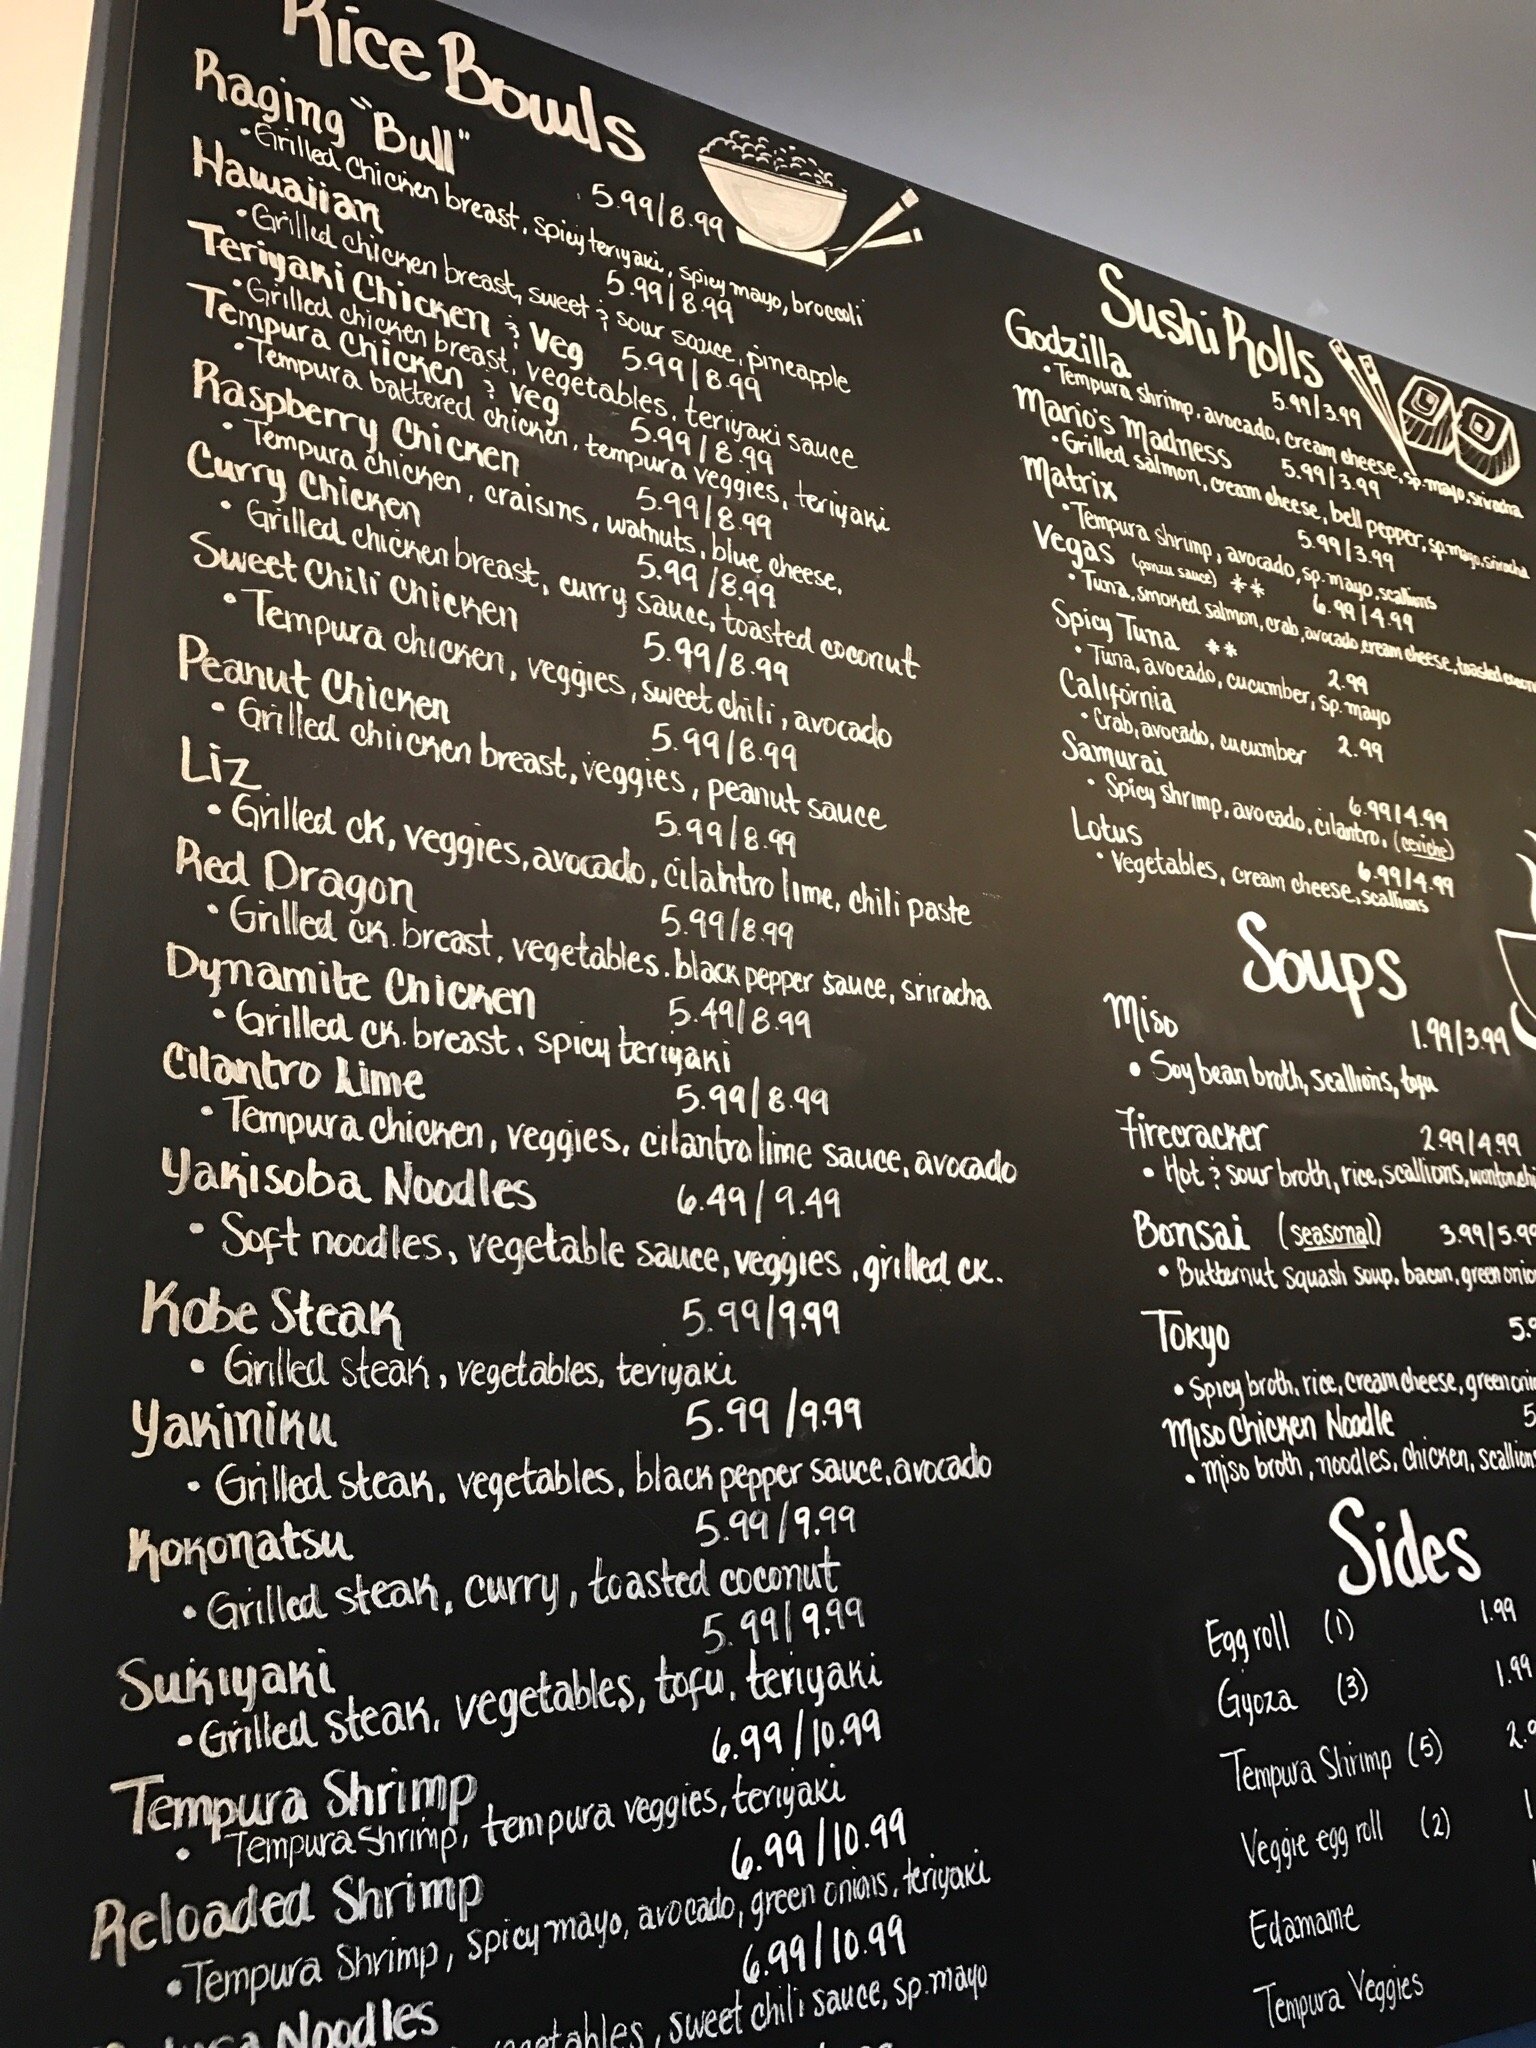 Rice Bowls
Raging "Bull" 5.99/8.99
• Grilled Chicken breast, spicy teriyaki, spicy mayo, broccoli
Hawaiian 5.99/8.99
• Grilled chicken breast, sweet & sour sauce, pineapple
Teriyaki Chicken & Veg 5.99/8.99
• Grilled chicken breast, vegetables, teriyaki sauce
Tempura Chicken & Veg 5.99/8.99
• Tempura battered chicken, tempura veggies, teriyaki
Raspberry Chicken 5.99/8.99
• Tempura chicken, craisins, walnuts, blue cheese.
Curry Chicken 5.99/8.99
• Grilled chicken breast, curry sauce, toasted coconut
Sweet Chili Chicken 5.99/8.99
• Tempura chicken, veggies, sweet chili, avocado
Peanut Chicken 5.99/8.99
• Grilled chiicken breast, veggies, peanut sauce
Liz 5.99/8.99
• Grilled ck, veggies, avocado, cilantro lime, chili paste
Red Dragon 5.99/8.99
• Grilled ck. breast, vegetables. black pepper sauce, sriracha
Dynamite Chicken 5.49/8.99
• Grilled ck. breast, spicy teriyaki
Cilantro Lime 5.99/8.99
• Tempura chicken, veggies, cilantro lime sauce, avocado
Yakisoba Noodles 6.49/9.49
• Soft noodles, vegetable sauce, veggies, grilled ck.
Kobe Steak 5.99/9.99
• Grilled steak, vegetables, teriyaki
Yakiniku 5.99/9.99
• Grilled steak, vegetables, black pepper sauce, avocado
Kokonatsu 5.99/9.99
• Grilled steak, curry, toasted coconut
Sukiyaki 5.99/9.99
• Grilled steak, vegetables, tofu, teriyaki
Tempura Shrimp 6.99/10.99
• Tempura Shrimp, tempura veggies, teriyaki
Reloaded Shrimp 6.99/10.99
• Tempura Shrimp, spicy mayo, avocado, green onions, teriyaki
Noodles 6.99/10.99
sweet chili sauce, sp. mayo
Sushi Rolls
Godzilla 5.99/3.99
• Tempura shrimp, avocado, cream cheese, sp. mayo, sriracha
Mario's Madness 5.99/3.99
• Grilled salmon, cream cheese, bell pepper, sp mayo, sriracha
Matrix 5.99/3.99
• Tempura shrimp, avocado, sp. mayo, scallions
Vegas (ponzu sauce) ** 6.99/4.99
• Tuna, smoked salmon, crab, avocado, cream cheese, toasted
Spicy Tuna ** 2.99
• Tuna, avocado, cucumber, sp. mayo
California 2.99
• Crab, avocado, cucumber
Samurai 6.99/4.99
• Spicy shrimp, avocado, cilantro, (ceviche)
Lotus 6.99/4.99
• Vegetables, cream cheese, scallions
Soups
Miso 1.99/3.99
• Soy bean broth, scallions, tofu
Firecracker 2.99/4.99
• Hot & sour broth, rice, scallions,
Bonsai (seasonal) 3.99/5.99
• Butternut squash soup, bacon, green
Tokyo
• Spicy broth, rice, cream cheese, green
Miso Chicken Noodle
• Miso broth, noodles, chicken,
Sides
Egg roll (1) 1.99
Gyoza (3) 1.99
Tempura Shrimp (5)
Veggie egg roll (2)
Edamame
Tempura Veggies